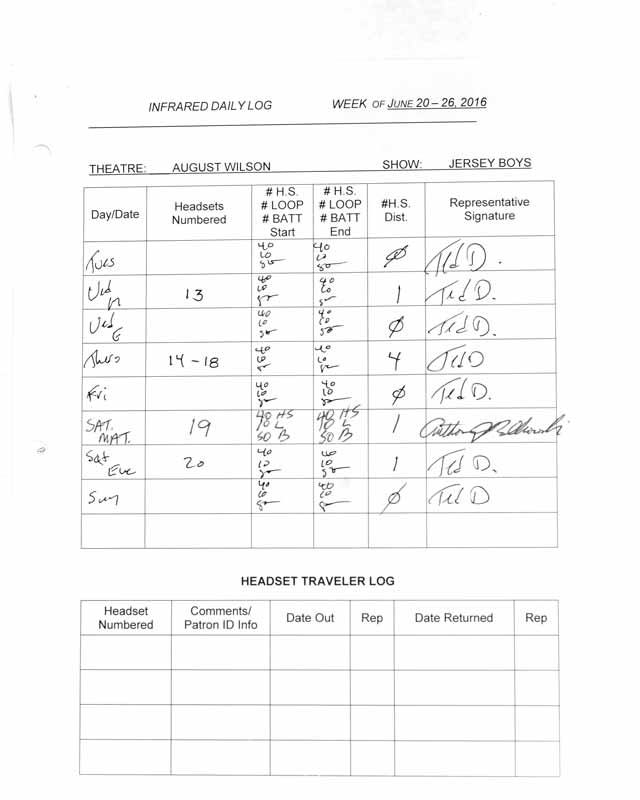 INFRARED DAILY LOG WEEK OF JUNE 20 – 26, 2016
THEATRE: AUGUST WILSON SHOW: JERSEY BOYS
Day/Date Headsets Numbered # H.S. # LOOP # BATT Start # H.S. # LOOP # BATT End #H.S. Dist. Representative Signature
Tues 40 10 50 40 10 50 Ø Ted D.
Wed M 13 40 10 50 40 10 50 1 Ted D.
Wed E 40 10 50 40 10 50 Ø Ted D.
Thurs 14-18 40 10 50 40 10 50 4 Ted D
Fri 40 10 50 40 10 50 Ø Ted D.
SAT. MAT. 19 40 HS 10 L 50 B 40 HS 10 L 50 B 1 Anthony
Sat Eve 20 40 10 50 40 10 50 1 Ted D.
Sun 40 10 50 40 10 50 Ø Ted D
HEADSET TRAVELER LOG
Headset Numbered Comments/ Patron ID Info Date Out Rep Date Returned Rep